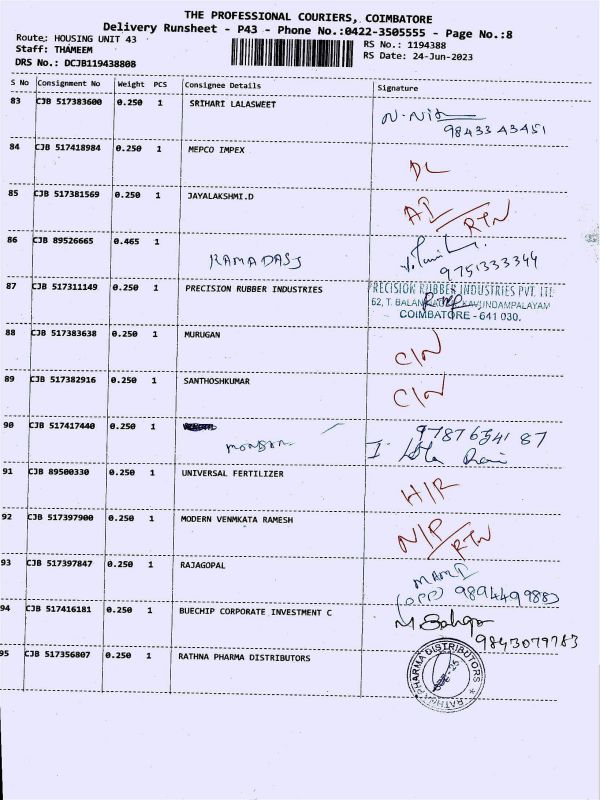 THE PROFESSIONAL COURIERS, COIMBATORE
Delivery Runsheet - P43 - Phone No.:0422-3505555 - Page No.:8
Route: HOUSING UNIT 43
RS No.: 1194388
Staff: THAMEEM
RS Date: 24-Jun-2023
DRS No.: DCJB119438808
S No Consignment No Weight PCS Consignee Details Signature
83 CJB 517383600 0.250 1 SRIHARI LALASWEET
9843343451
84 CJB 517418984 0.250 1 MEPCO IMPEX DL
85 CJB 517381569 0.250 1 JAYALAKSHMI.D AI/RTN
86 CJB 89526665 0.465 1
RAMADASS 9751333344
87 CJB 517311149 0.250 1 PRECISION RUBBER INDUSTRIES PRECISION RUBBER INDUSTRIES PVT. LTD.
COIMBATORE - 641 030.
88 CJB 517383638 0.250 1 MURUGAN C/N
89 CJB 517382916 0.250 1 SANTHOSHKUMAR C/N
90 CJB 517417440 0.250 1
91 CJB 89500330 0.250 1 UNIVERSAL FERTILIZER H/R
92 CJB 517397900 0.250 1 MODERN VENMKATA RAMESH N/P/RTN
93 CJB 517397847 0.250 1 RAJAGOPAL
(OPP)
94 CJB 517416181 0.250 1 BUECHIP CORPORATE INVESTMENT C
9843079783
95 CJB 517356807 0.250 1 RATHNA PHARMA DISTRIBUTORS
RATHNA PHARMA DISTRIBUTORS